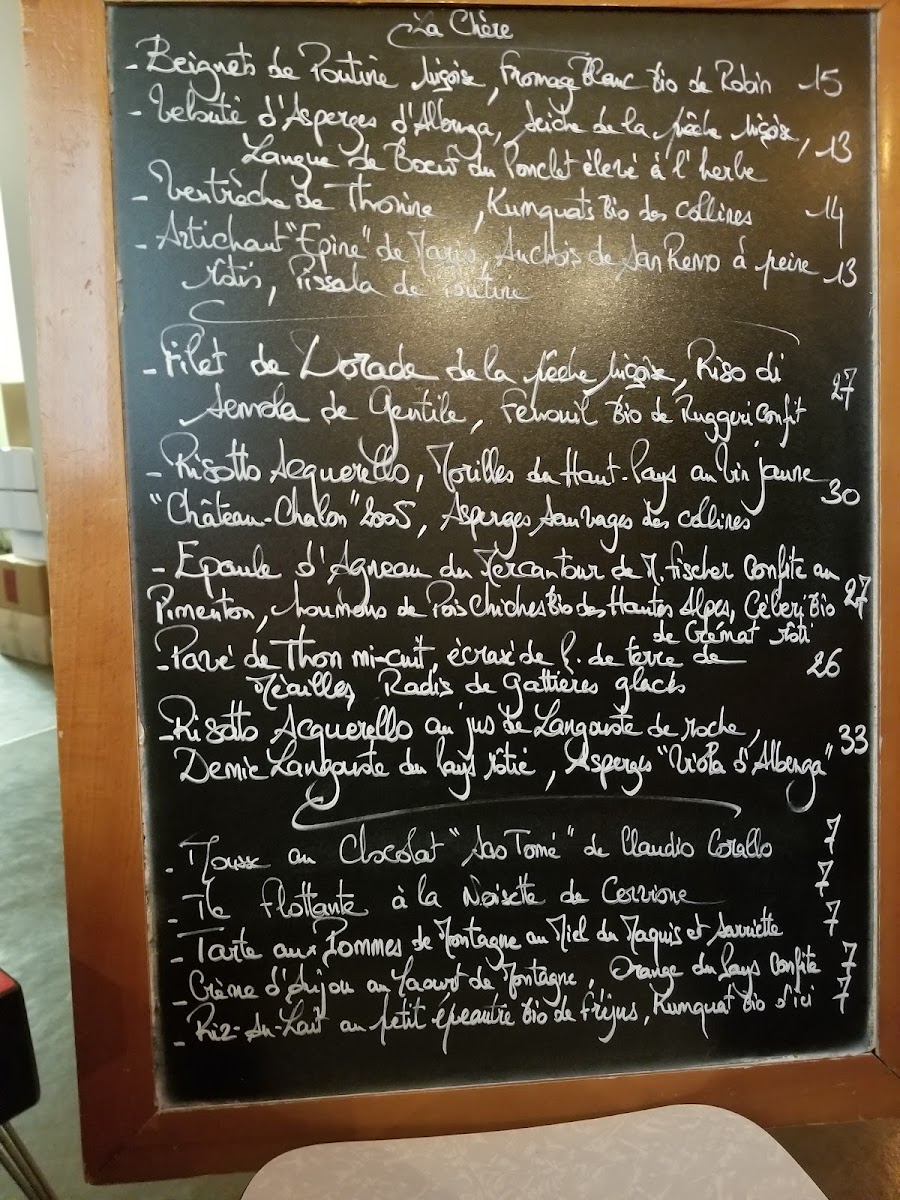 La Chère
- Beignets de Poutine niçoise, Fromage Blanc Bio de Robin 15
- Velouté d'Asperges d'Albenga, Seiche de la pêche niçoise, 13
Langue de Boeuf du Ponclet élevé à l'herbe
- Ventrèche de Thonine, Kumquats Bio des Collines 14
- Artichaut "Epine" de Mario, Anchois de San Remo à peine 13
rôtis, Pissala de Poutine
- Filet de Dorade de la pêche niçoise, Riso di 27
Semola de Gentile, Fenouil Bio de Ruggeri Confit
- Risotto Acquerello, Morilles du Haut-Pays au Vin jaune 30
"Château-Chalon" 2005, Asperges Sauvages des Collines
- Epaule d'Agneau du Mercantour de M. Fischer Confite au
Pimenton, houmous de Pois Chiches Bio des Hautes Alpes, Céleri Bio 27
de Crémat rôti
- Pavé de Thon mi-cuit, écrasé de P. de terre de 26
Méailles, Radis de Gattières glacés
- Risotto Acquerello au jus de Langouste de roche, 33
Demie Langouste du Pays rôtie, Asperges "Viola d'Albenga"
- Mousse au Chocolat "Sao Tomé" de Claudio Corallo 7
- Ile Flottante à la Noisette de Cervione 7
- Tarte aux Pommes de Montagne au Miel du Maquis et Sarriette 7
- Crème d'Anjou au Yaourt de Montagne, Orange du Pays Confite 7
- Riz-Au-Lait au petit épeautre Bio de Fréjus, Kumquat Bio d'ici 7